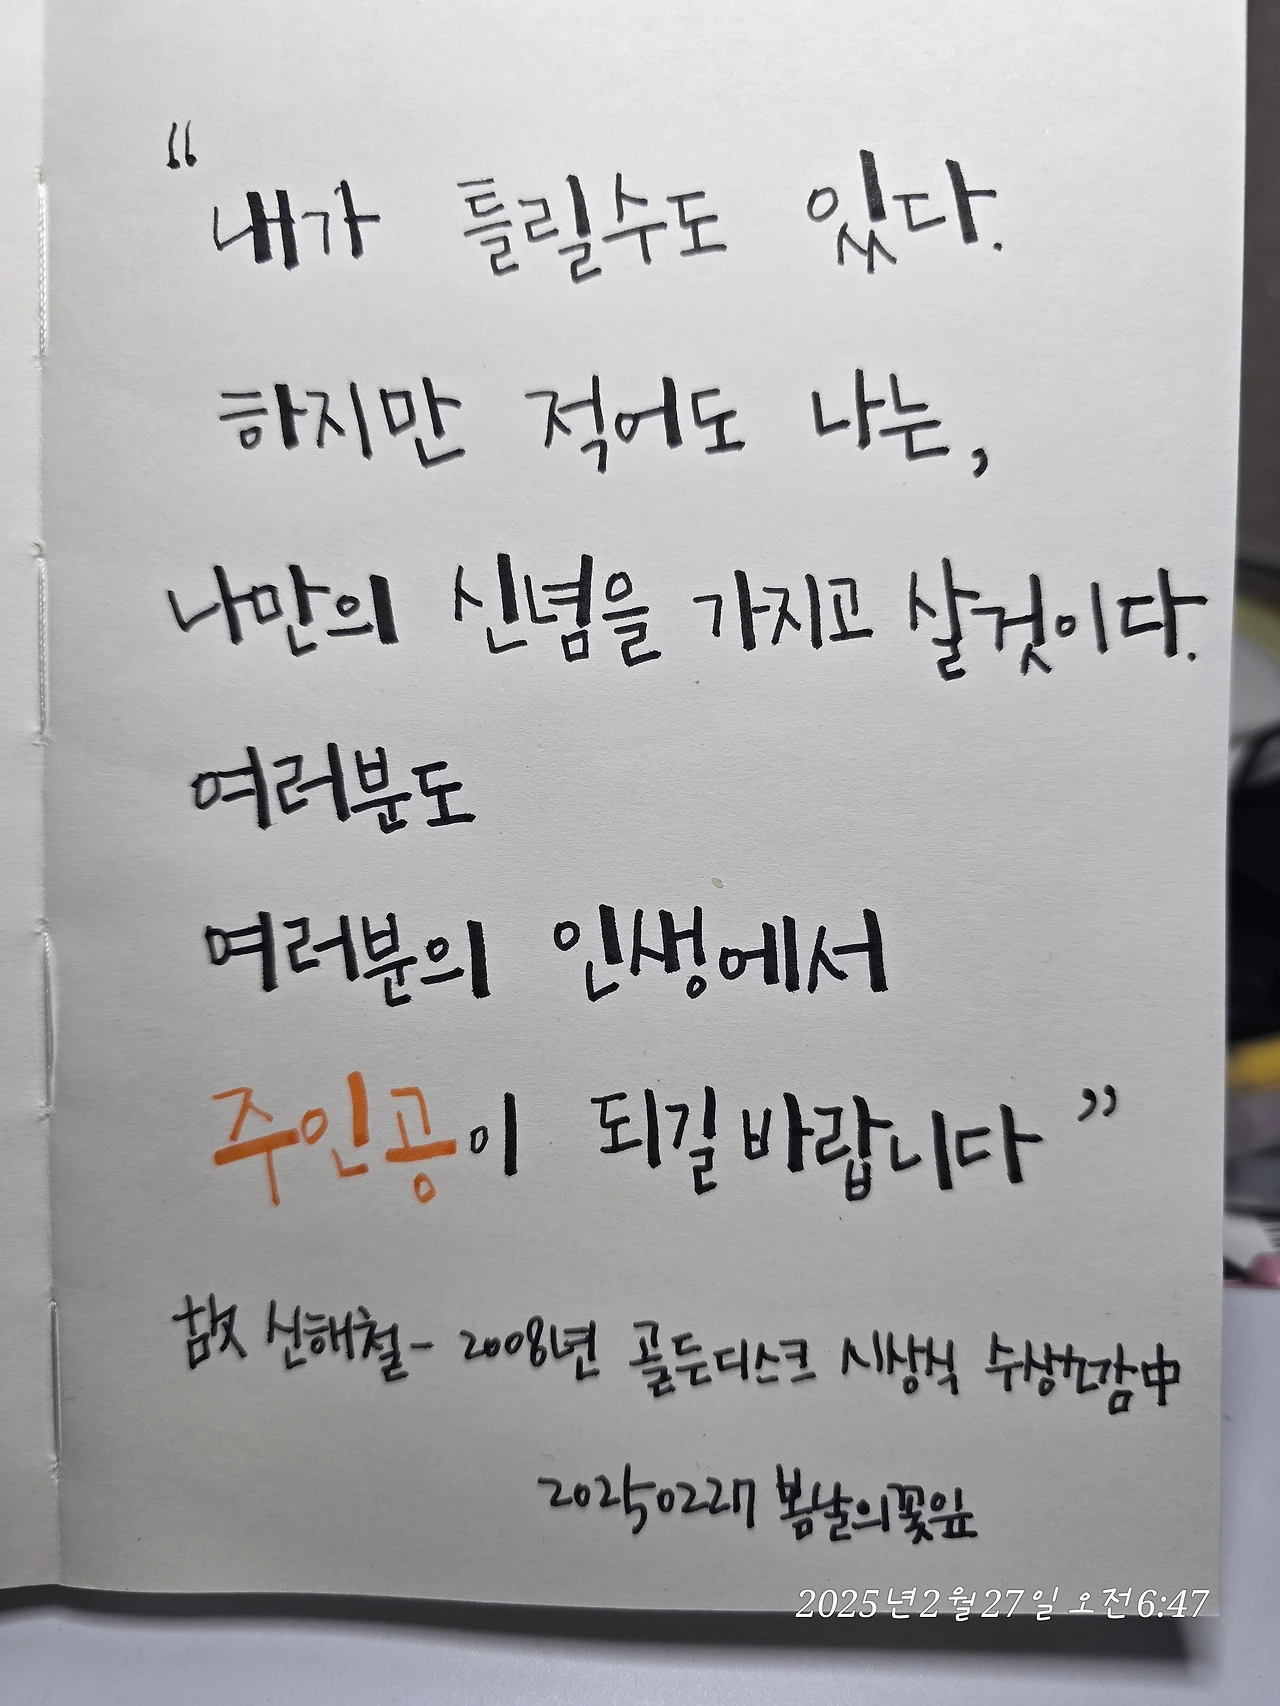 “내가 틀릴수도 있다.
하지만 적어도 나는,
나만의 신념을 가지고 살것이다.
여러분도
여러분의 인생에서
주인공이 되길 바랍니다”
故 신해철- 2008년 골든디스크 시상식 수상소감中
20250227 봄날의꽃잎
2025년 2월 27일 오전 6:47